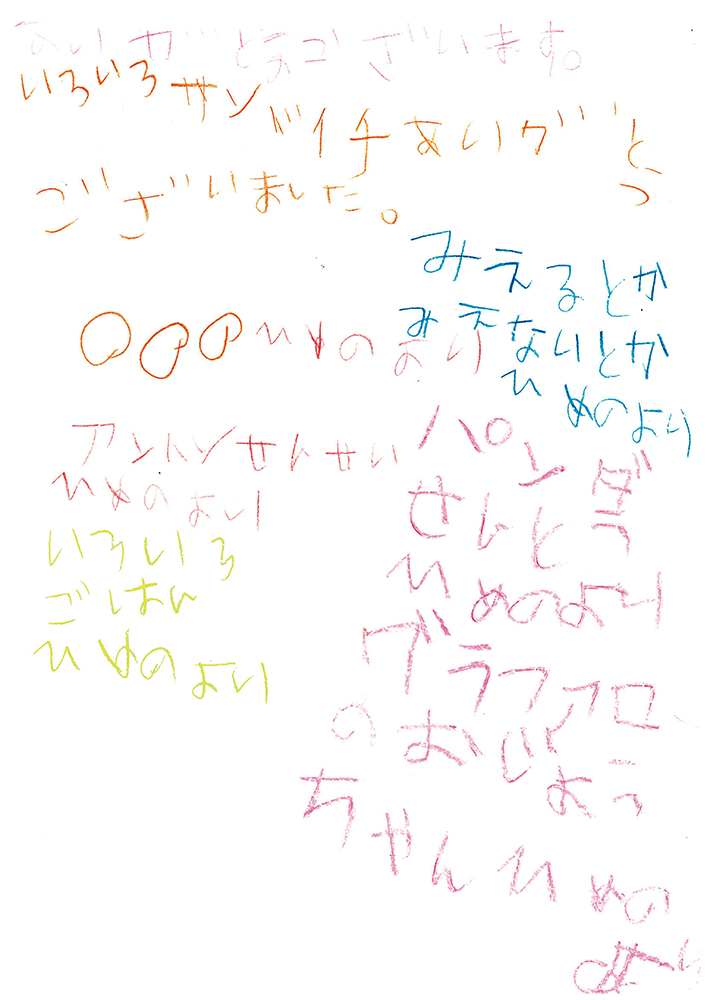 ありがとうございます。
いろいろサンドイチありがとう
ございました。
ひめのより
みえるとか
みえないとか
ひめのより
アントンせんせい
ひめのより
いろいろ
ごはん
ひめのより
パンダ
せんとう
ひめのより
グラファロ
のおじょう
ちゃんひめの
より